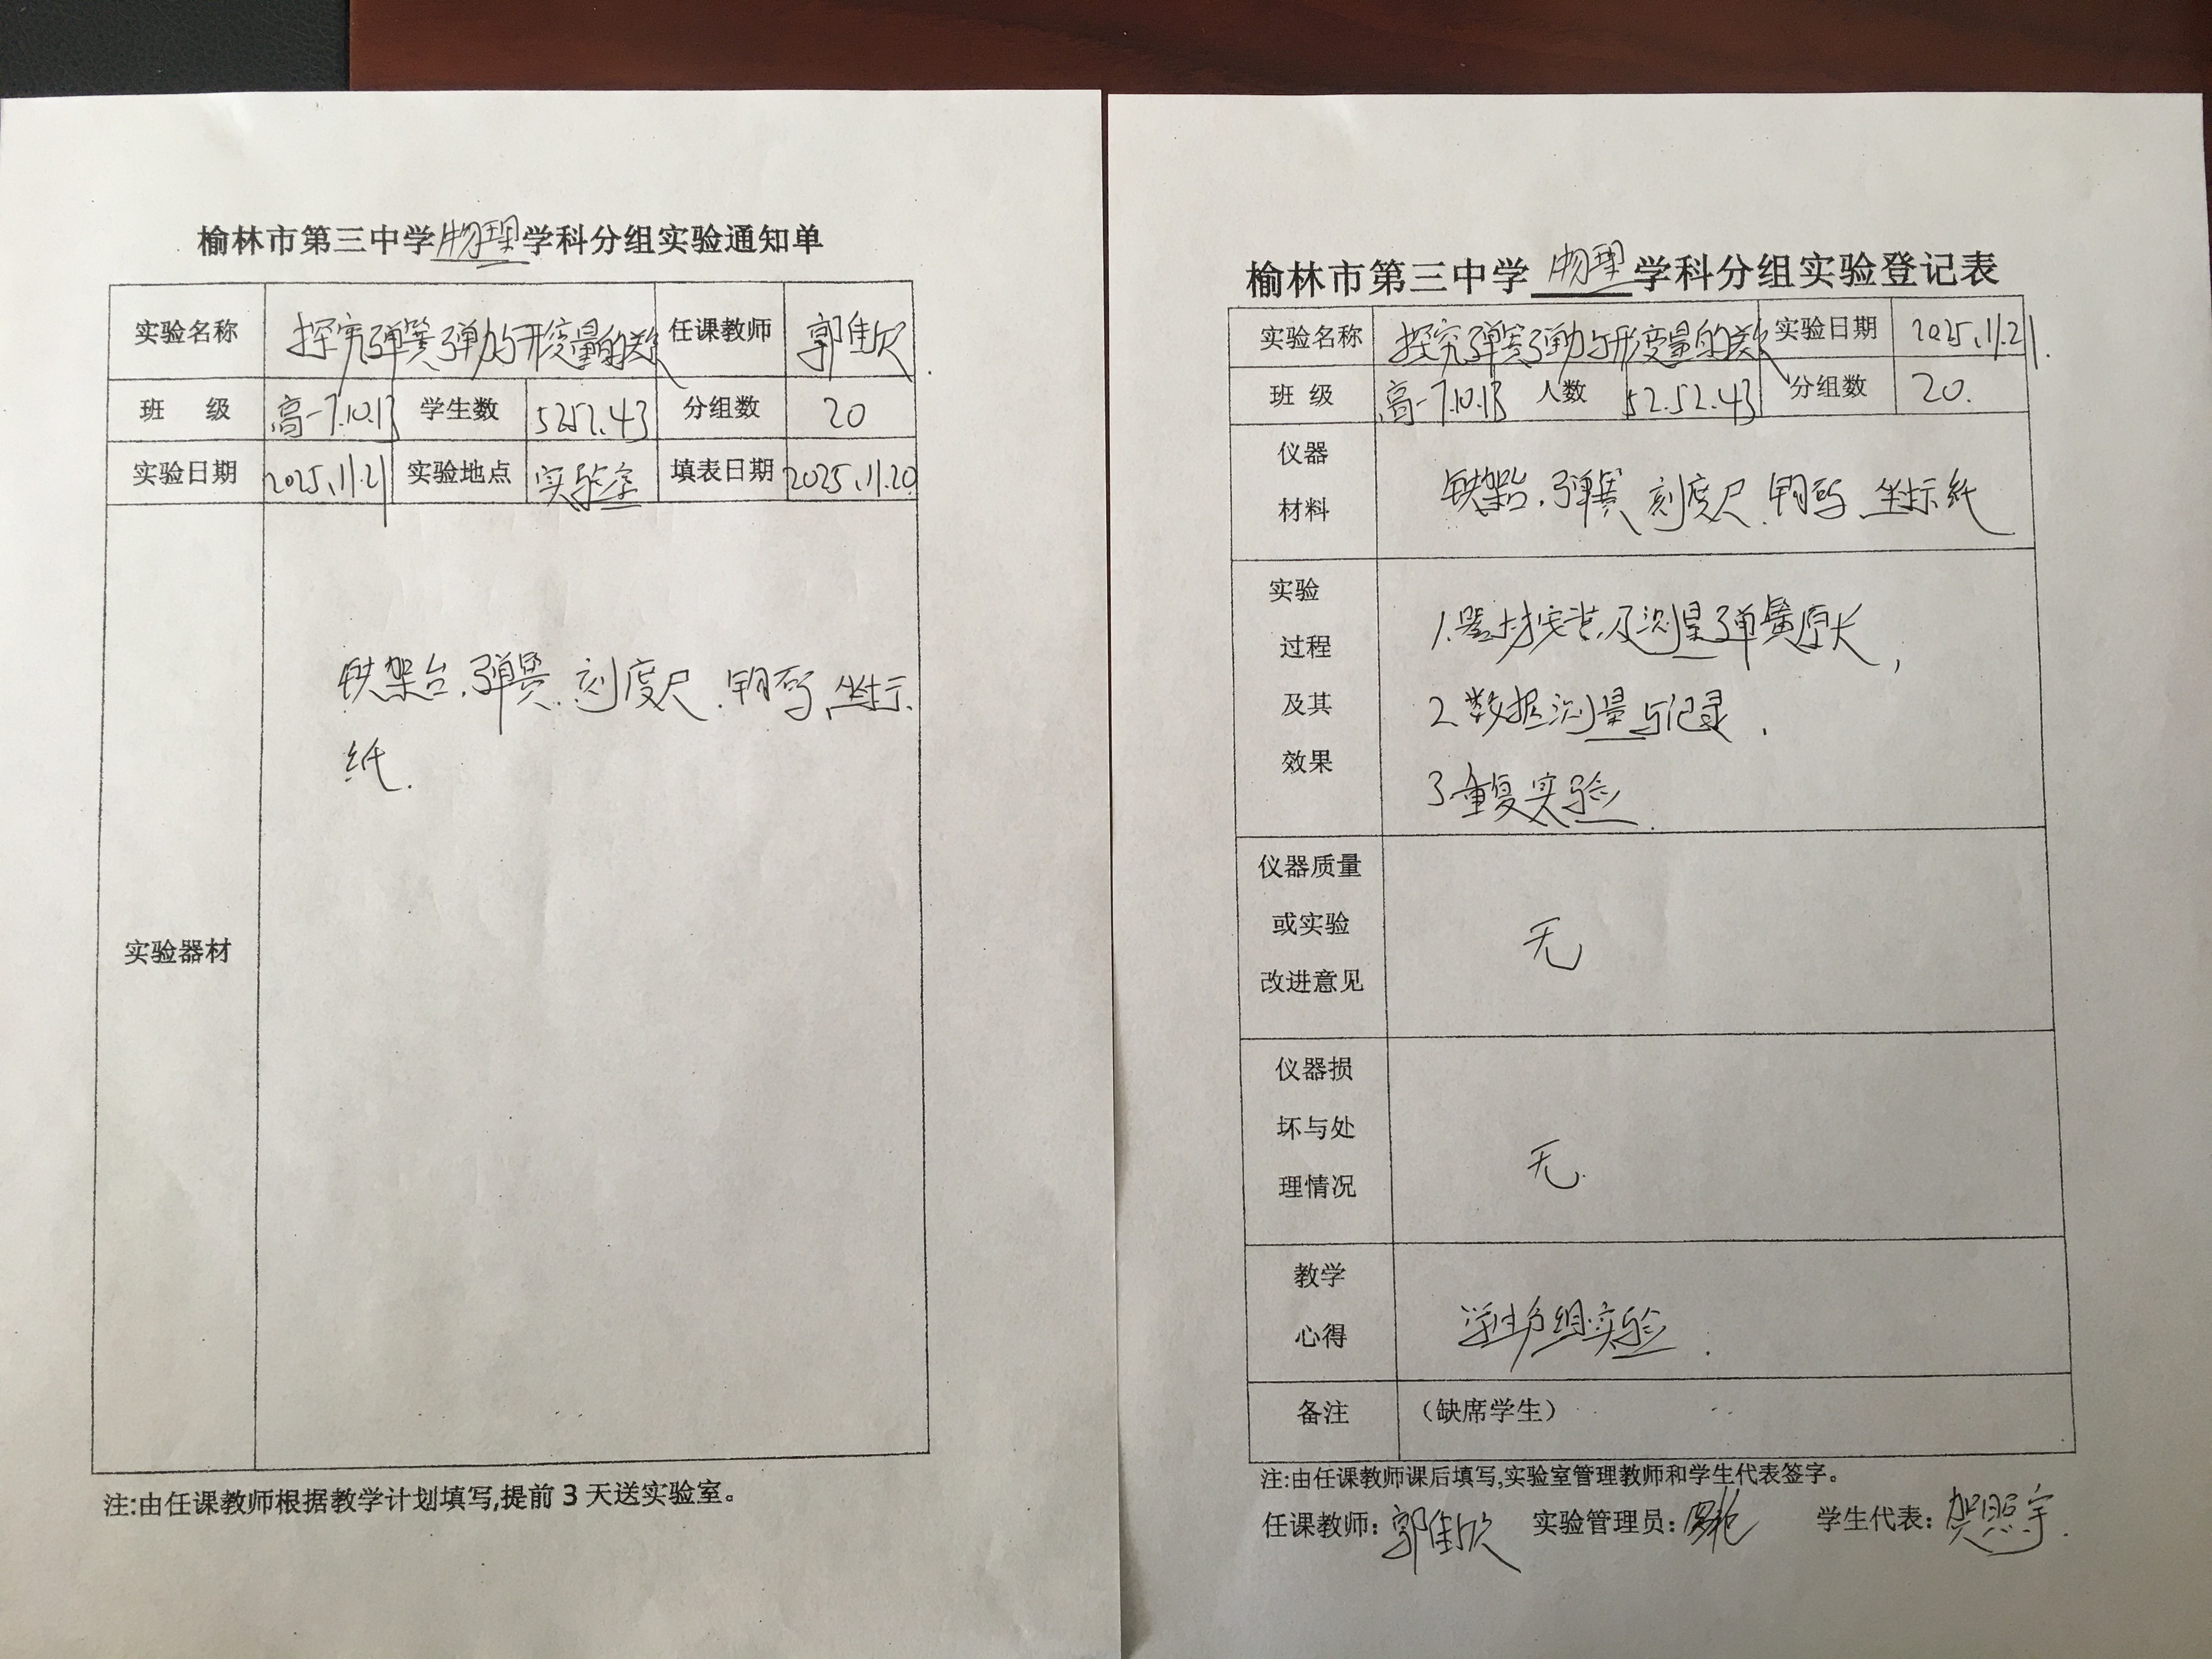 榆林市第三中学物理学科分组实验通知单
实验名称 探究弹簧弹力与形变量的关系 任课教师 郭佳欣
班 级 高一7.10.13 学生数 52.52.43 分组数 20
实验日期 2025.11.21 实验地点 实验室 填表日期 2025.11.20
实验器材
铁架台.弹簧.刻度尺.钩码.坐标
纸.
注:由任课教师根据教学计划填写,提前3天送实验室。
榆林市第三中学物理学科分组实验登记表
实验名称 探究弹簧弹力与形变量的关系 实验日期 2025.11.21.
班 级 高一7.10.13 人数 52.52.43 分组数 20.
仪器
材料
铁架台.弹簧.刻度尺.钩码.坐标纸
实验
过程
及其
效果
1.器材安装.及测量弹簧原长,
2.数据测量与记录.
3.重复实验.
仪器质量
或实验
改进意见
无
仪器损
坏与处
理情况
无.
教学
心得
学生分组实验.
备注 （缺席学生）
注:由任课教师课后填写,实验室管理教师和学生代表签字。
任课教师:郭佳欣 实验管理员: 学生代表:贺照宇.